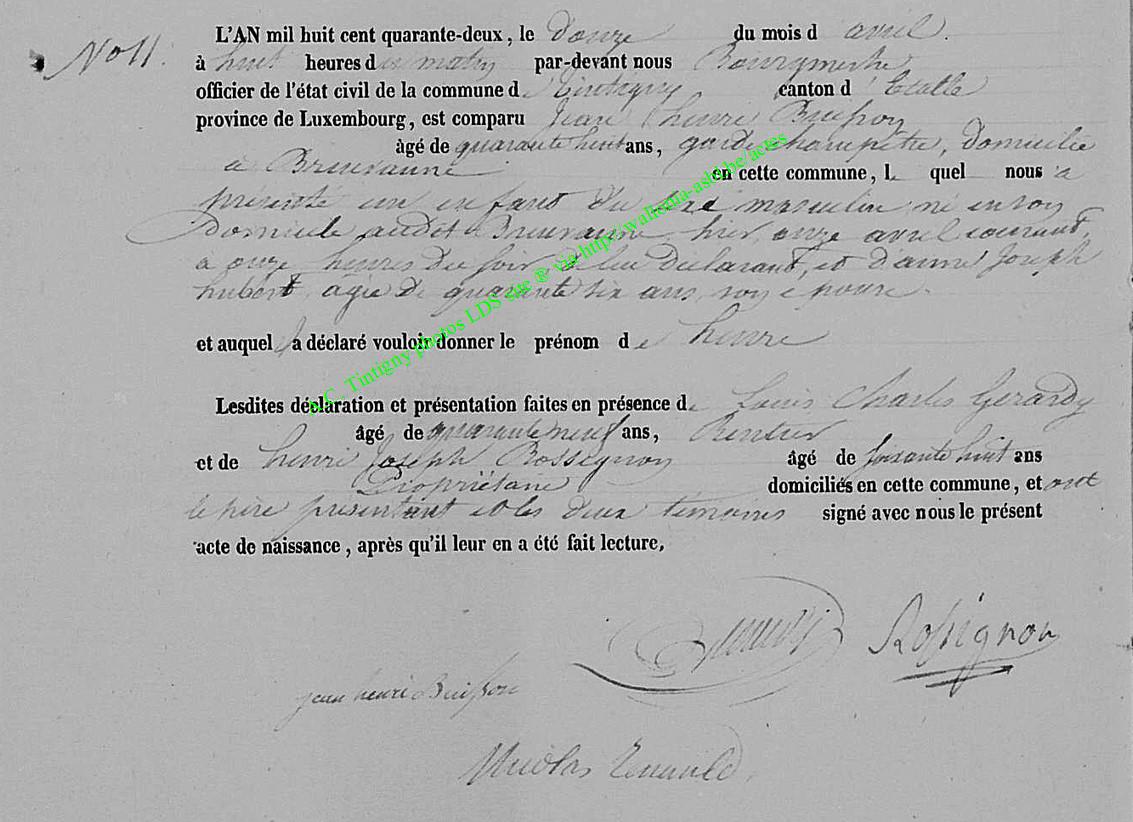 No 11.
L'AN mil huit cent quarante-deux, le douze du mois d avril.
à huit heures du matin par-devant nous Bourgmestre
officier de l'état civil de la commune de Tintigny canton d Etalle
province de Luxembourg, est comparu Jean henri Buisson
âgé de quarante huit ans, garde champêtre, domicilie
a Breuvanne en cette commune, le quel nous a
présenté un enfant du sexe masculin né en son
Domicile audit Breuvanne hier, onze avril courant,
à onze heures du soir, de lui declarant, et d'anne Joseph
hubert, agée de quarante six ans, son epouse.
et auquel il a déclaré vouloir donner le prénom de henri
Lesdites déclaration et présentation faites en présence de Louis Charles Gerardy
âgé de quarante neuf ans, Rentier
et de henri Joseph Rossignon âgé de soixante huit ans
Propriétaire domiciliés en cette commune, et ont
le père présentant et les deux temoins signé avec nous le présent
acte de naissance, après qu'il leur en a été fait lecture,
Rossignon
jean henri Buisson
Nicolas
A.C. Tintigny photos LDS site ® via http://wallonia-asbl.be/actes